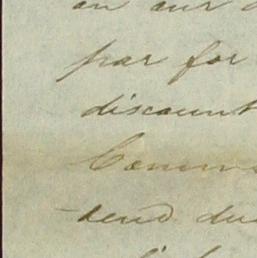 on our
par for
discount
Comm
tend du